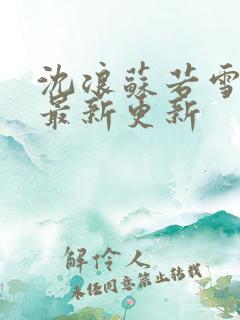 沈浪蘇若雪
最新更新
解伶人
未经同意禁止转载